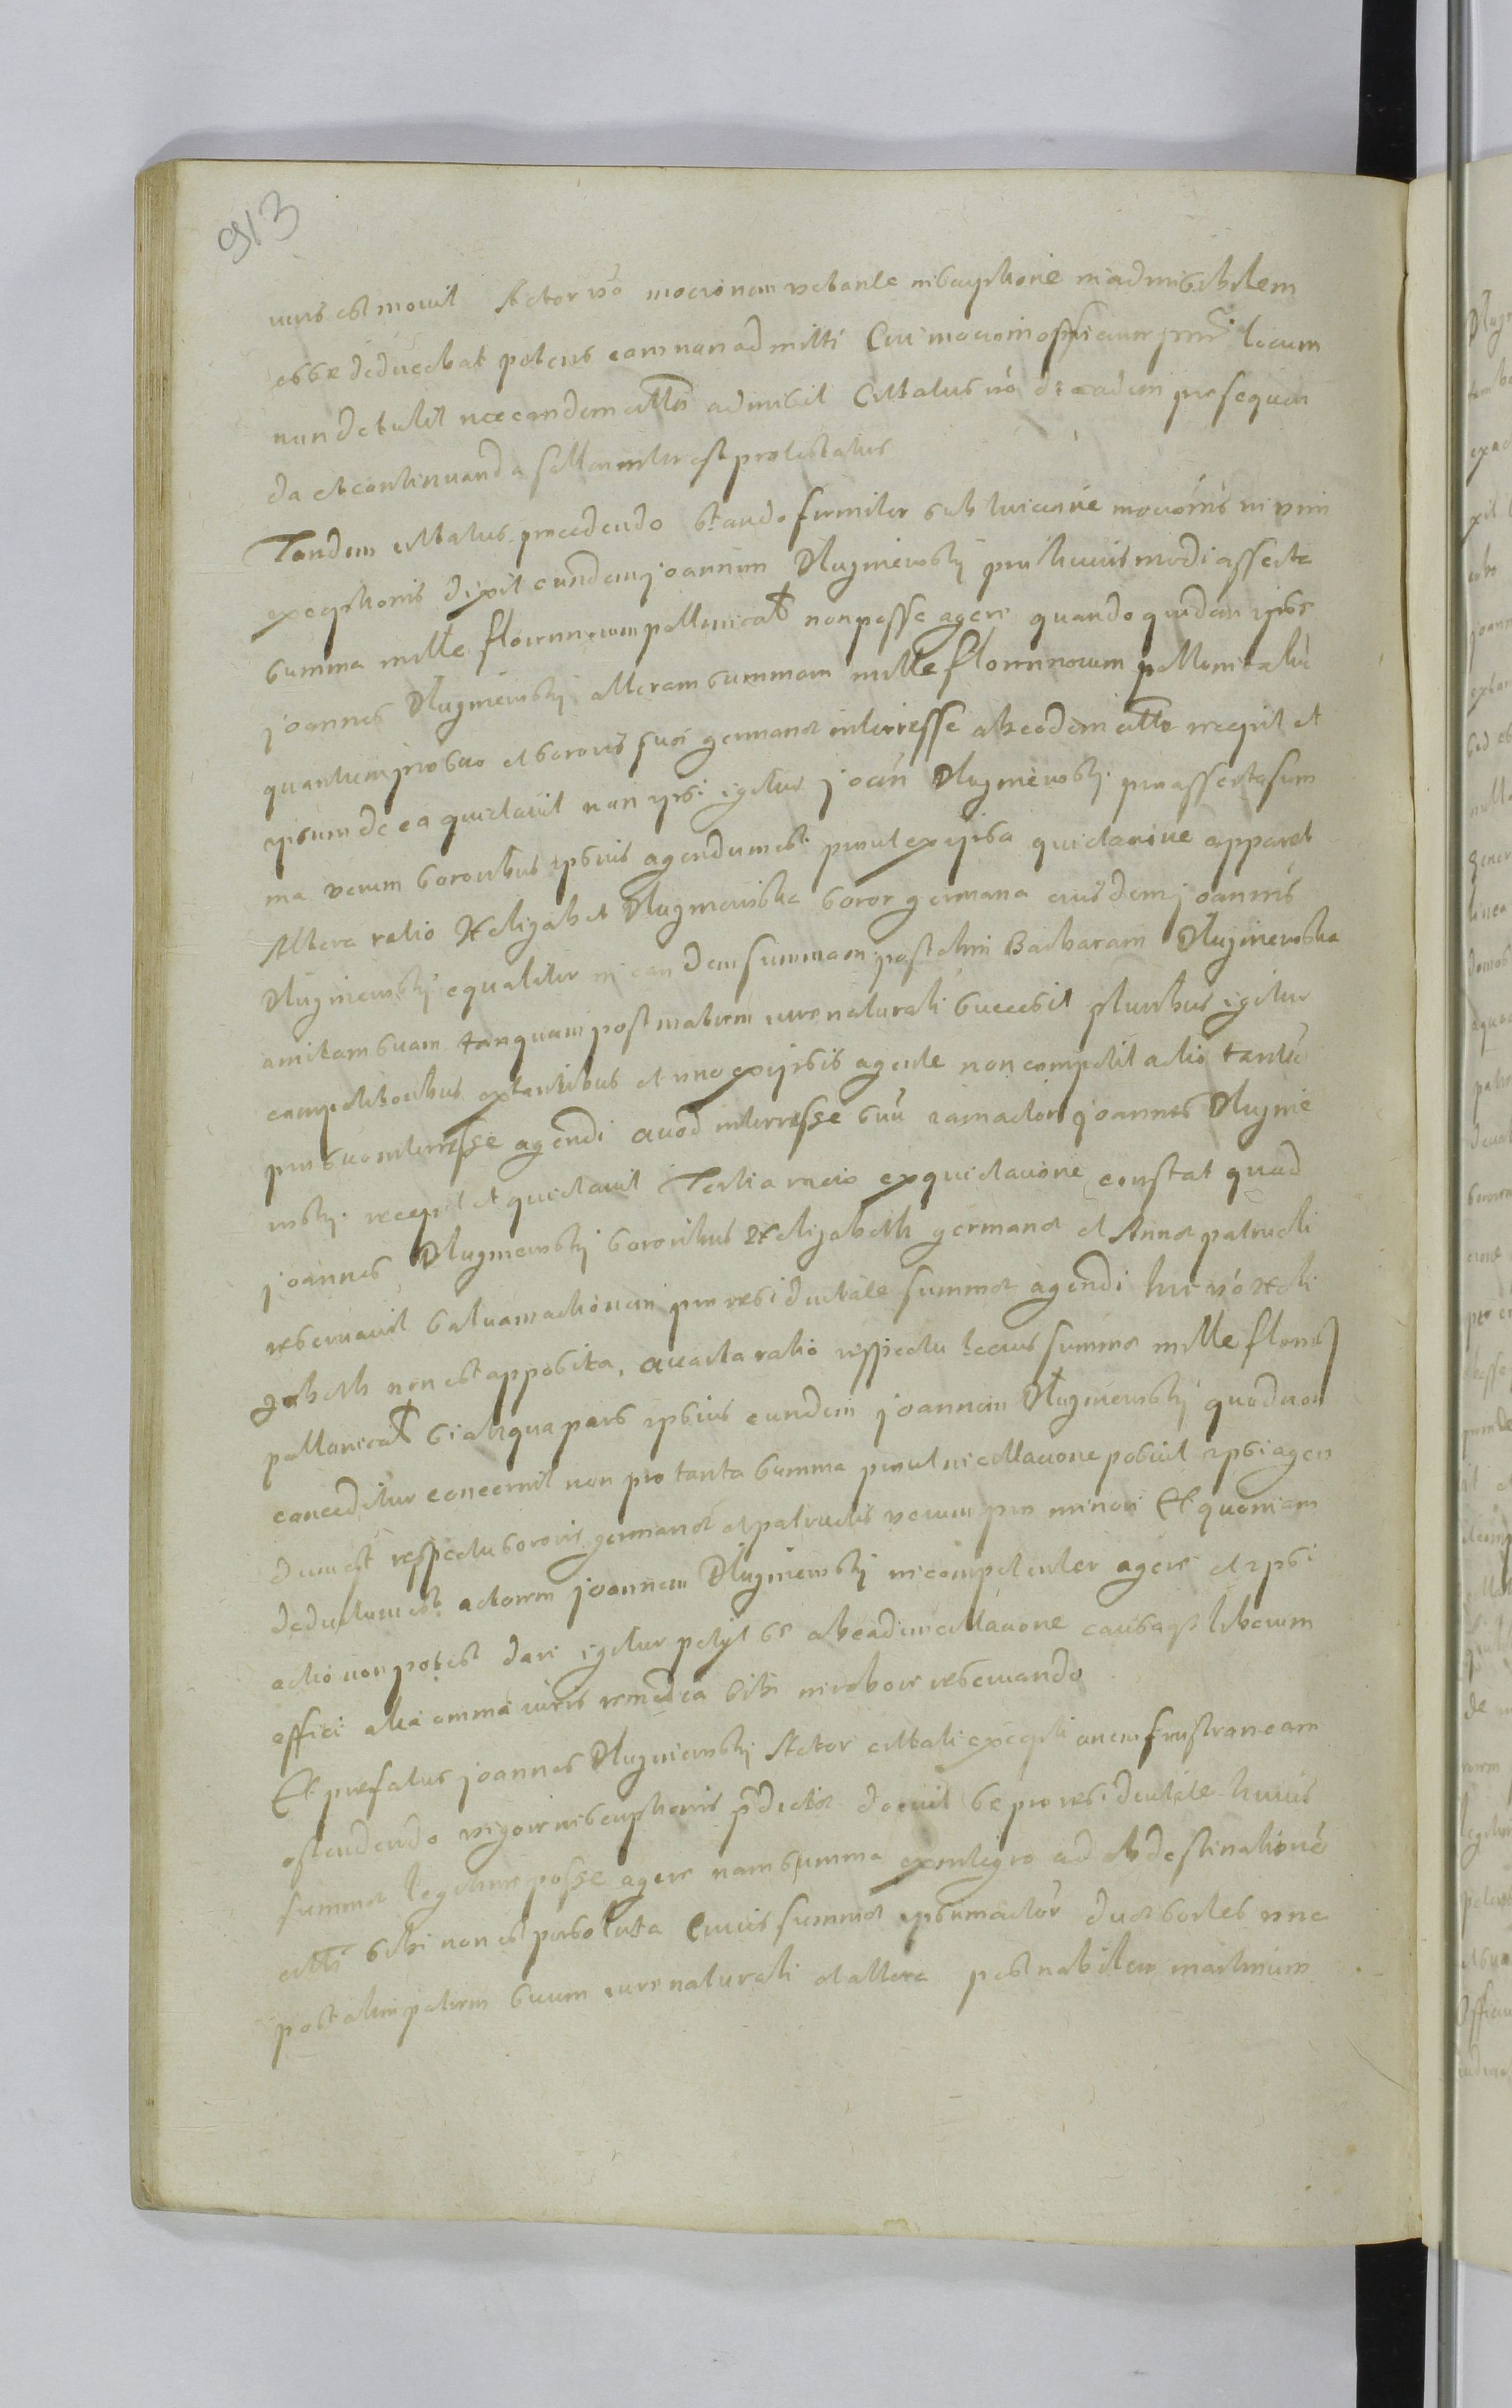 913
iuris est movit Actor vo motionem vetante inscriptione inadmissibilem
esse deducebat petens eam non admitti Cui motioni officium pnti locum
non detulit nec eandem cittto admisit Cittatus vo de eadem prosequen
da et continuanda sollenniter est protestatus
Tandem cittatus procedendo stando firmiter sub luitione motionis in vim
exceptionis dixit eundem joannem Dlugniewskij pro huiusmodi asserta
summa mille florennorum pollonicał non posse agere quandoquidem ipse
joannes Dlugniewskij alteram summam mille florennorum pollonicaliu
quantum pro suo et sororis suæ germanæ interresse ab eodem citto recepit et
ipsum de ea quietavit non ipsi igitur joan Dlugniewskij pro asserta sum
ma verum sororibus ipsius agendum est prout ex ipsa quietatione apparet
Altera ratio Helizabet Dlugniewska soror germana eiusdem joannis
Dlugniewskij equaliter in eandem summam post olim Barbaram Dlugniewska
amitam suam tanquam post matrem iure naturali successit pluribus igitur
competitoribus extantibus et uno ex ipsis agente non competit actio tantu
pro suo interresse agendi quod interresse suu iam actor joannes Dlugnie
wskij recepit et quietavit Tertia ratio ex quietatione constat quod
joannes Dlugniewskij sororibus Helizabeth germanæ et Annæ patrueli
reservavit salvam actionem pro residuitate summæ agendi hic vo Heli
zabeth non est apposita, Quarta ratio respectu tertius summæ mille floren
pollonicał si aliqua pars ipsius eundem joannem Dlugniewskij quod non
conceditur concernit non pro tanta summa prout in cittatione posuit ipsi agen
dum est respectu sororis germanæ et patruelis verum pro minori Et quoniam
deductum est actorem joannem Dlugniewskij incompetenter agere et ipsi
actio non potest dari igitur petyt se ab eadem cittatione causaq liberum
effici alia omnia iuris remedia sibi in robore reservando
Et præfatus joannes Dlugniewskij Actor cittati exceptionem frustraneam
ostendendo vigore inscriptionis pdictæ docuit se pro residuitate huius
summæ legitime posse agere nam summa ex integro ad ob destinatione
citti sibi non est persoluta Cuius summæ ipsum actor duæ sortes una
post olim patrem suum iure naturali et altera post nobilem martinum